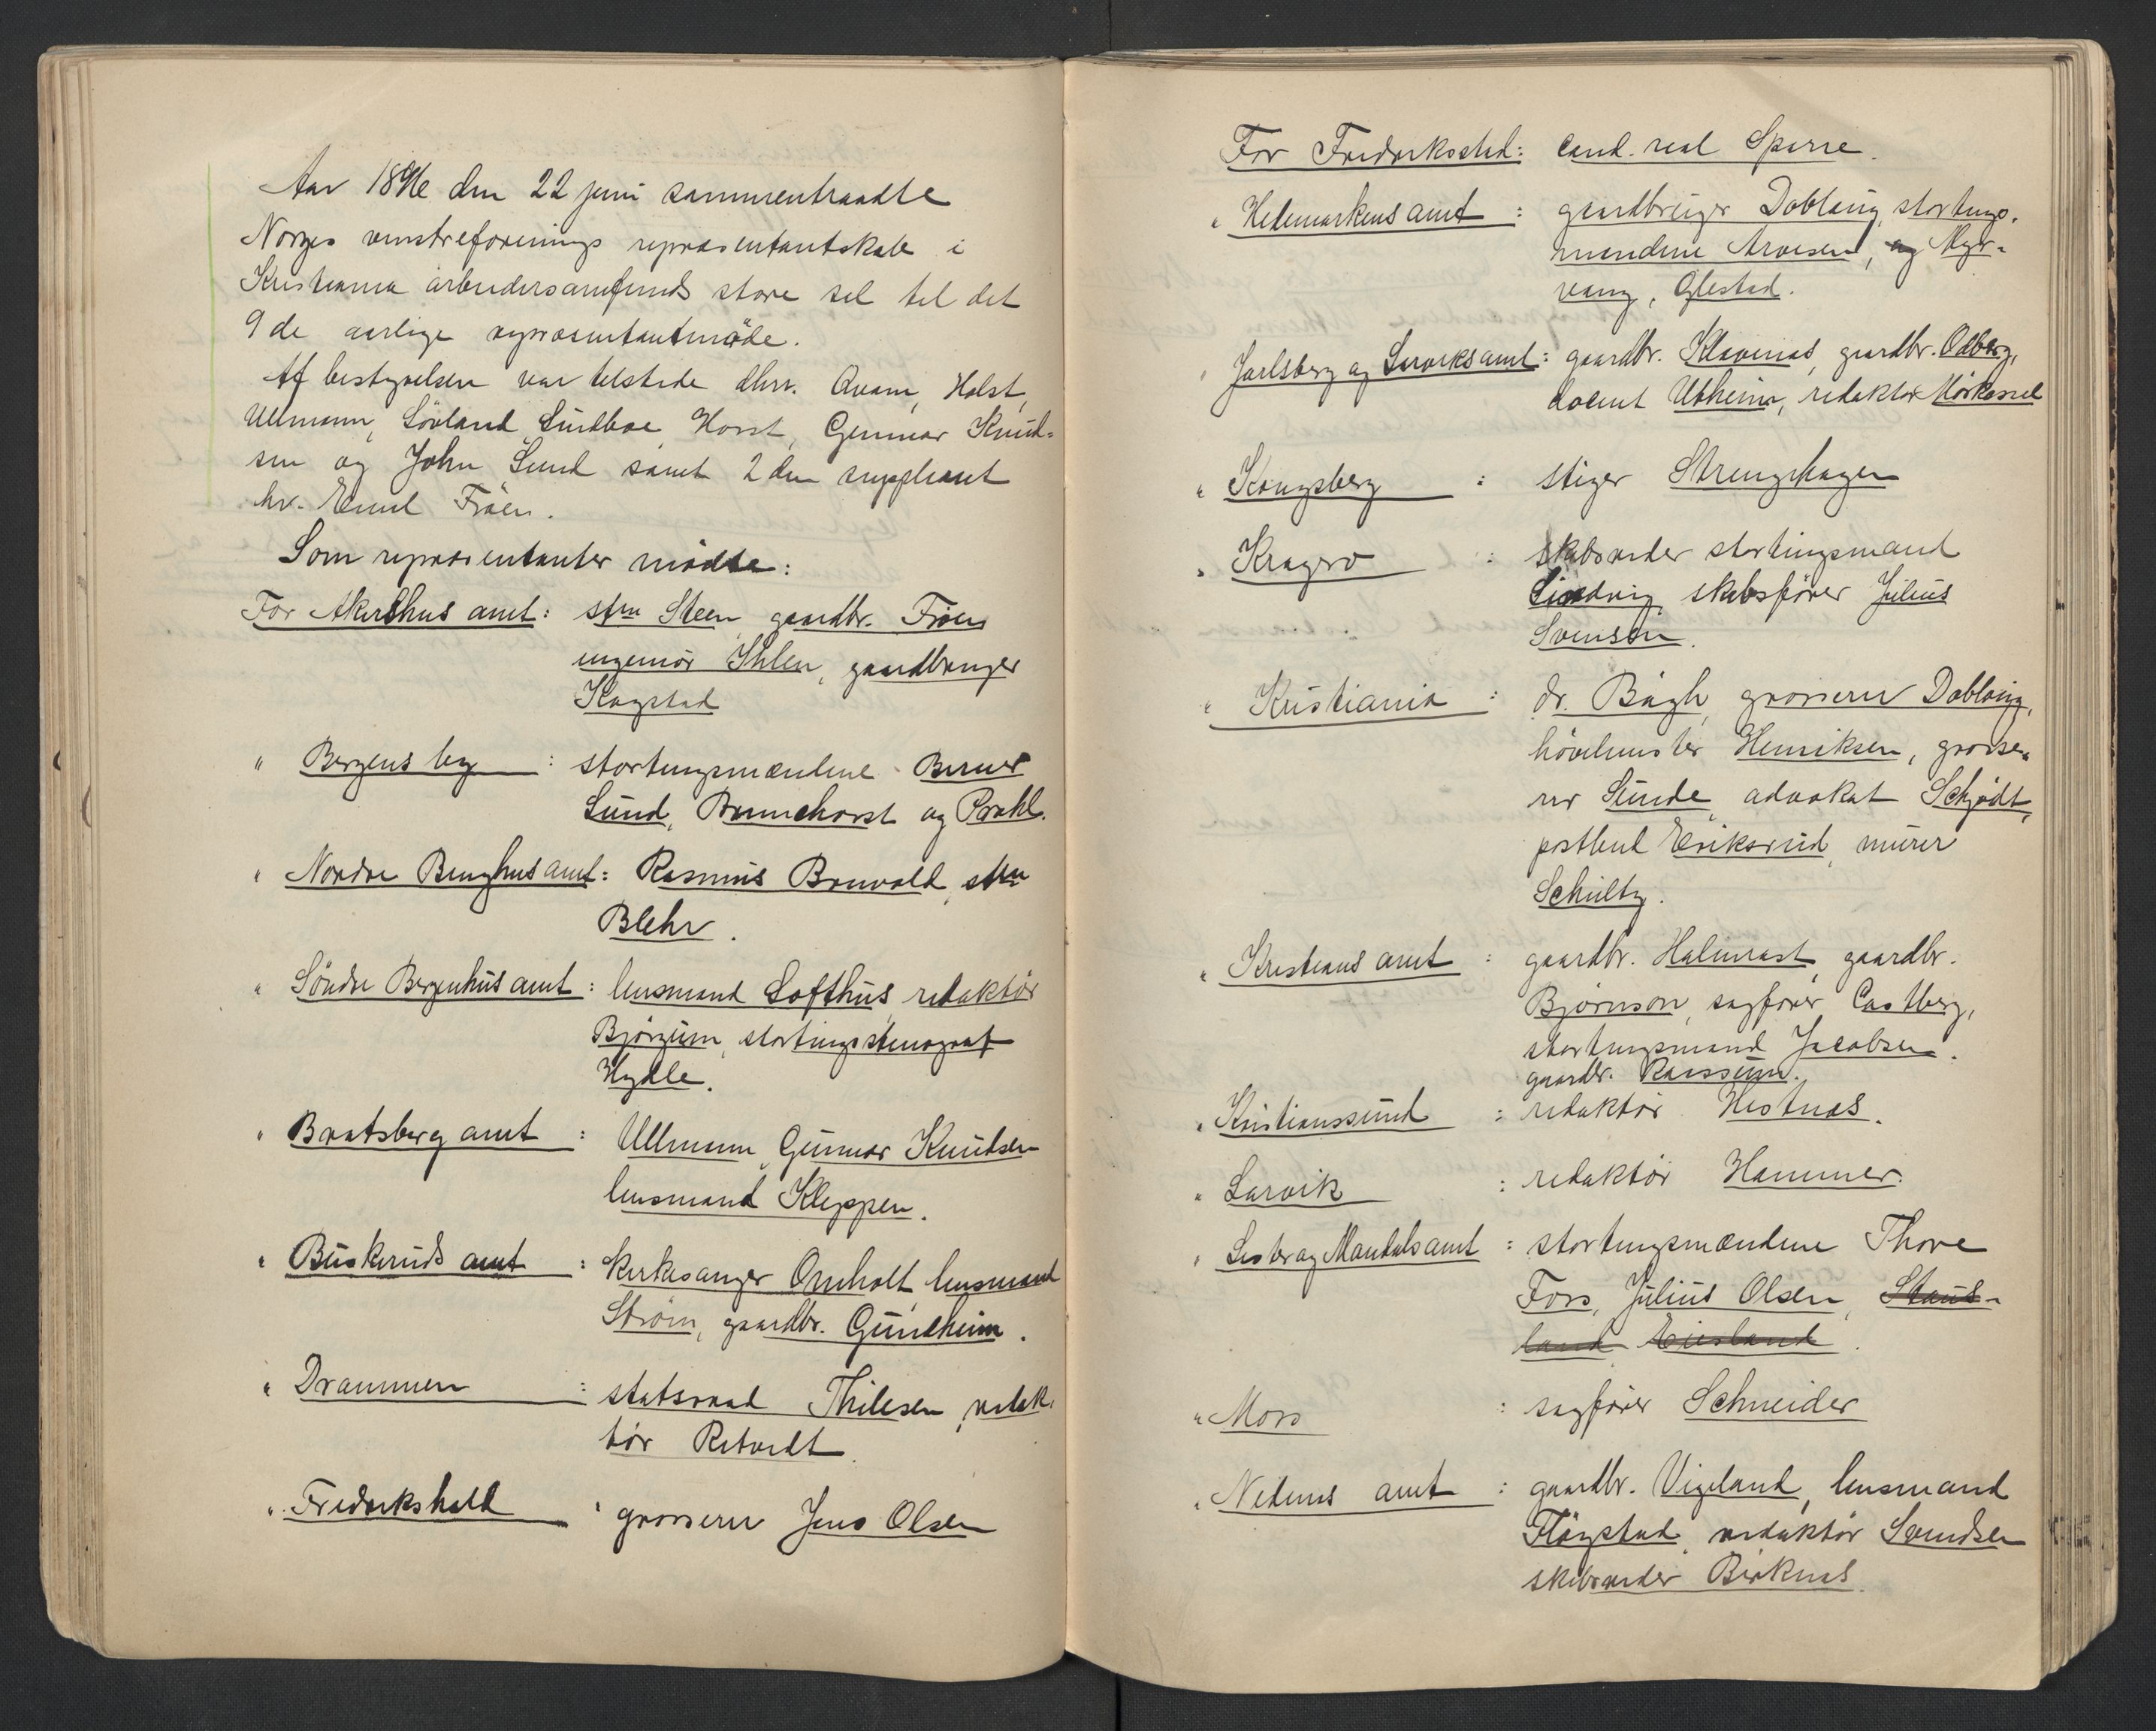 Aar 1896 den 22 juni sammentraadte
Norges venstreforenings repræsentantskab i
Kristiania arbeidersamfunds store sal til det
9de aarlige repræsentantmøde.
Af bestyrelsen var tilstede dhrr. Qvam, Holst,
Ullmann, Lövland, Lindboe, Horst, Gunnar Knud-
sen og John Lund samt 2den suppleant
hr. Emil Fröen.
Som repræsentanter mödte:
For Akershus amt: stm Steen, gaardbr. Fröen
ingeniör Ihlen, gaardbruger
Kogstad
" Bergens by : stortingsmændene Berner
Lund, Brunchorst og Prahl.
" Nordre Bergenhus amt: Rasmus Brunvold, stm
Blehr.
" Söndre Bergenhus amt: lensmand Lofthus, redaktör
Björgum, stortingsstenograf
Hydle.
" Bratsberg amt : Ullmann, Gunnar Knudsen
lensmand Kleppen.
" Buskeruds amt : kirkesanger Omholt, lensmand
Ström, gaardbr. Gundheim.
" Drammen : statsraad Thilesen, redak-
tör Retvedt.
" Fredrikshald : grosserer Jens Olsen
For Fredriksstad: cand. real Sparre.
" Hedemarkens amt : gaardbruger Dobloug, stortings-
mændene Arvesen, og Myr-
vang, Glestad.
" Jarlsberg og Larviks amt: gaardbr. Klavenæs, gaardbr. Odberg,
docent Utheim, redaktör Mörkessel
" Kongsberg : stiger Strenghagen
" Kragerö : skibsreder stortingsmand
Lindvig, skibsförer Julius
Svensen.
" Kristiania : dr. Bugh, grosserer Dobloug,
hövelmester Henriksen, grosse-
rer Sunde, advokat Schjödt,
postbud Eriksrud, murer
Schultz.
" Kristians amt : gaardbr. Halmrast, gaardbr.
Björnson, sagförer Castberg,
stortingsmand Jacobsen.
gaardbr. Raassum.
" Kristianssund : redaktör Hestnæs.
" Larvik : redaktör Hammer.
" Lister og Mandals amt : stortingsmændene Thore
Foss, Julius Olsen, Staus-
land Eiesland.
" Moss : sagförer Schneider
" Nedenes amt : gaardbr. Vigeland, lensmand
Flögstad, redaktör Svendsen
skibsreder Birknæs.